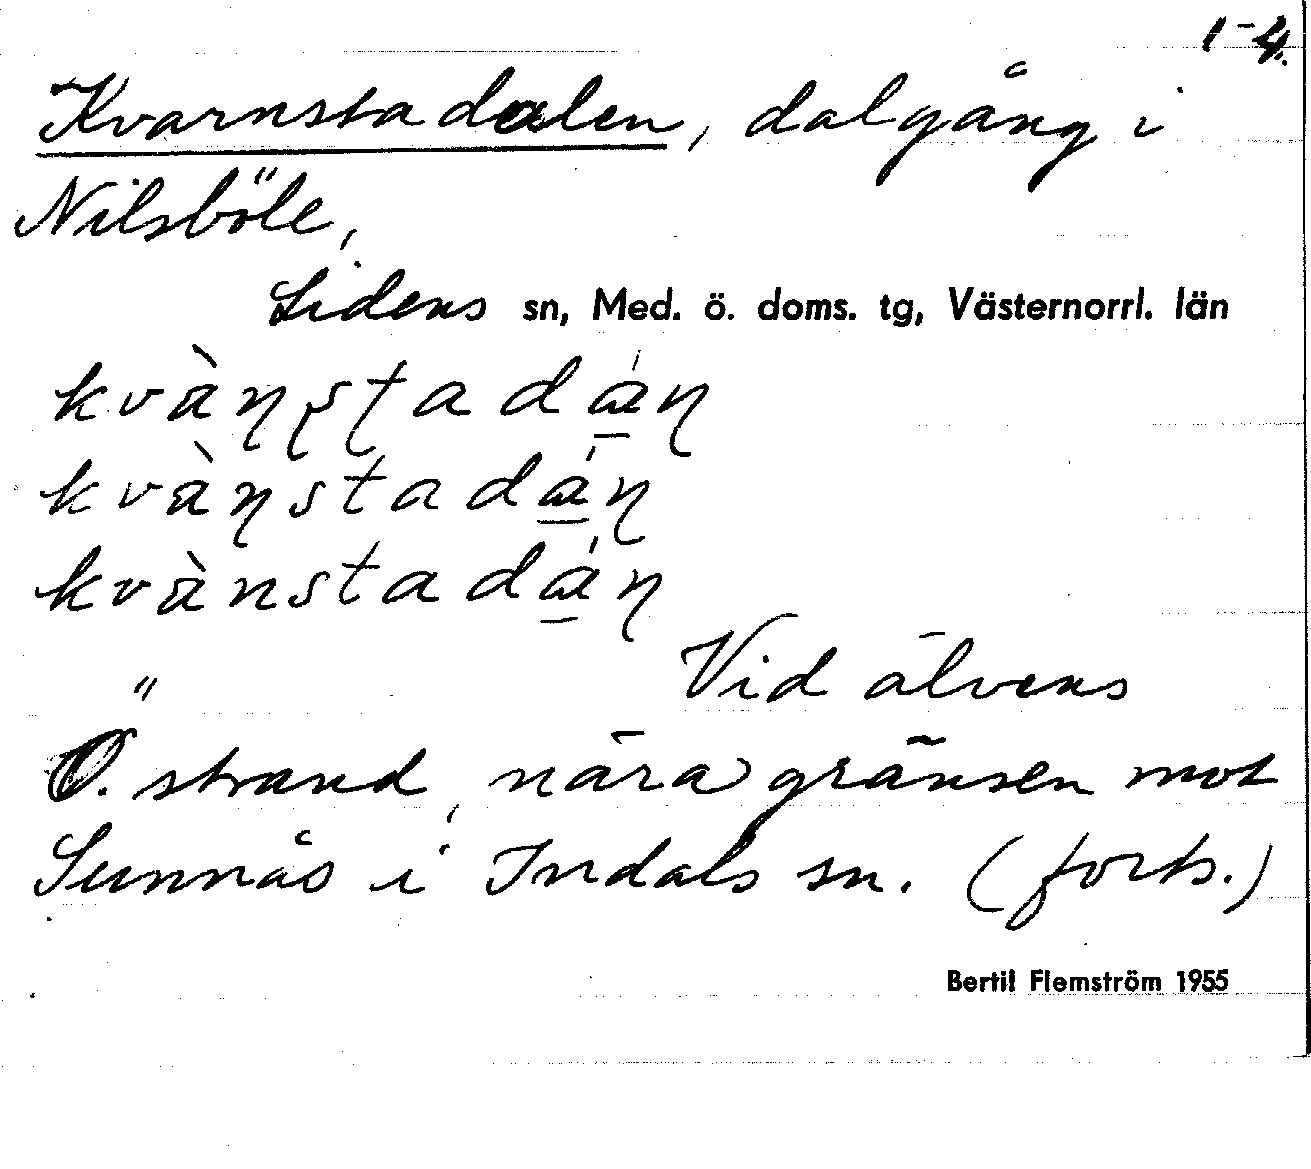 1-4.
Kvarnstadalen, dalgång i
Nilsböle,
Lidens sn, Med. ö. doms. tg, Västernorrl. län
kvàɳʂʈadá̱ɳ
kvàɳstadá̱ɳ
kvànstadá̱ɳ
" Vid älvens
Ö. strand, nära gränsen mot
Sunnås i Indals sn. (forts.)
Bertil Flemström 1955